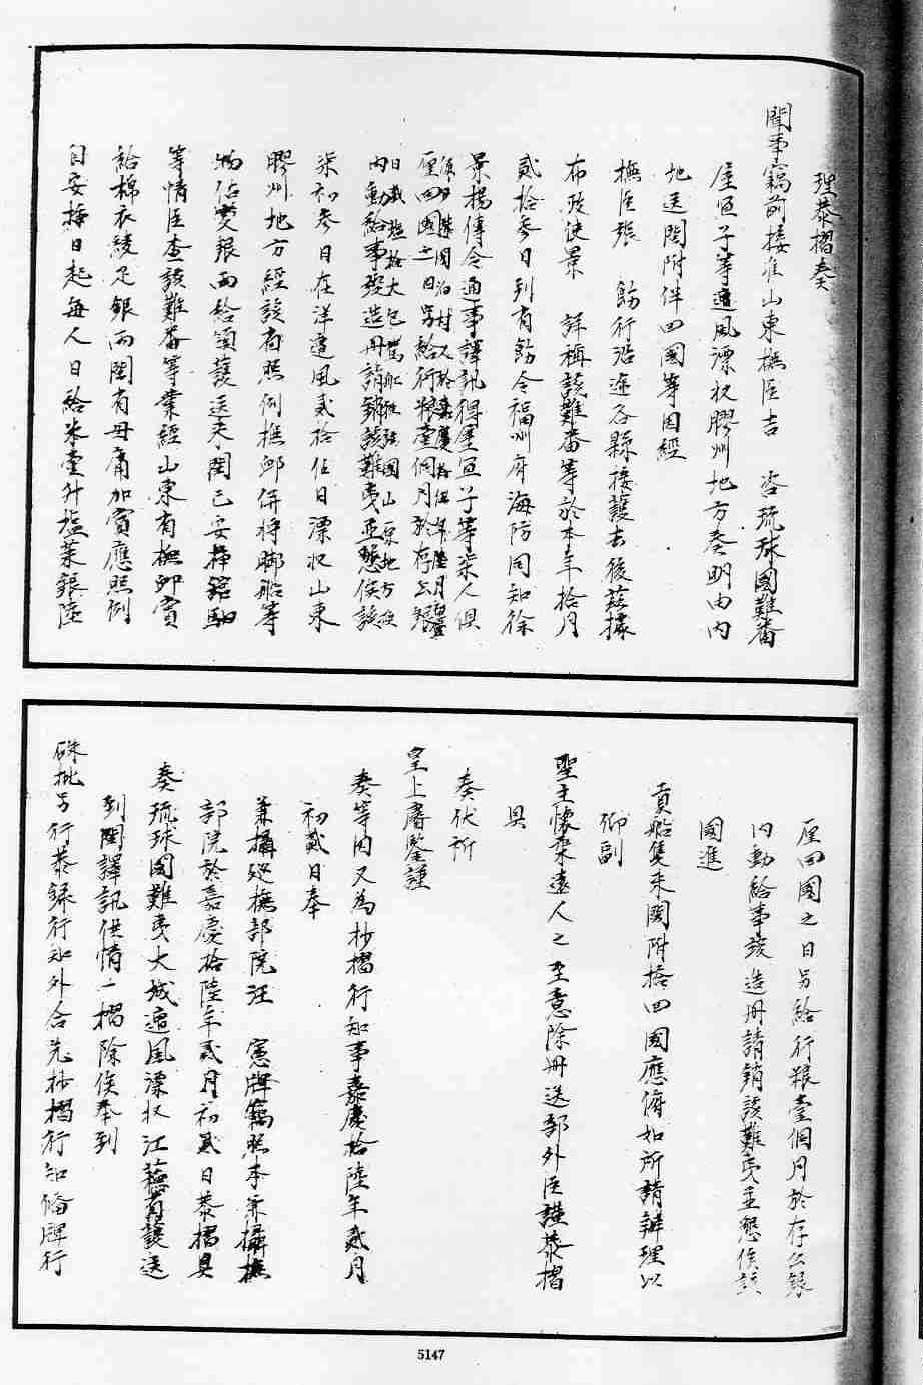 理恭摺奏
聞事竊前接准山東撫臣吉　咨琉球國難番
屋宜子等遭風漂收膠州地方奏明由內
地送閩附伴回國等因經
撫臣張　飭行沿途各縣接護去後茲據
布政使景　詳稱該難番等於本年拾月
貳拾參日到省飭令福州府海防同知徐
景揚傳令通事譯訊得屋宜子等柒人俱
厘回國之日另給行糧壹個月於存公銀
內動給事竣造冊請銷該難夷並懇俟該
柒初參日在洋遭風貳拾伍日漂收山東
膠州地方經該省照例撫卹併將脚船等
物估變銀兩給領護送來閩已安插館驛
等情臣查該難番等業經山東省撫卹賞
給棉衣綾足銀兩閩省毋庸加賞應照例
自安插日起每人日給米壹升塩菜銀陸
厘回國之日另給行糧壹個月於存公銀
內動給事竣造冊請銷該難夷並懇俟該
國進
貢船隻來閩附搭回國應俯如所請辦理以
仰副
聖主懷柔遠人之至意除冊送部外臣謹恭摺
具
奏伏祈
皇上睿鑒謹
奏等因又為抄摺行知事嘉慶拾陸年貳月
初貳日奉
兼攝巡撫部院汪　憲牌竊照本兼攝撫
部院於嘉慶拾陸年貳月初貳日恭摺具
奏琉球國難夷大城遭風漂收江蘇省護送
到閩譯訊供情一摺除俟奉到
硃批另行恭錄行知外合先抄摺行知備牌行
5147